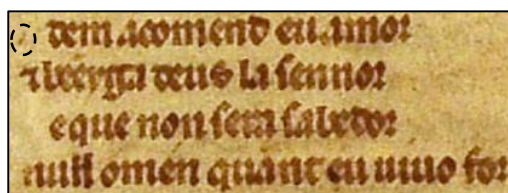 dem acomend eu amor
alberga deus la sennor
e que non sera sabedor
null omen quant eu uiuo for